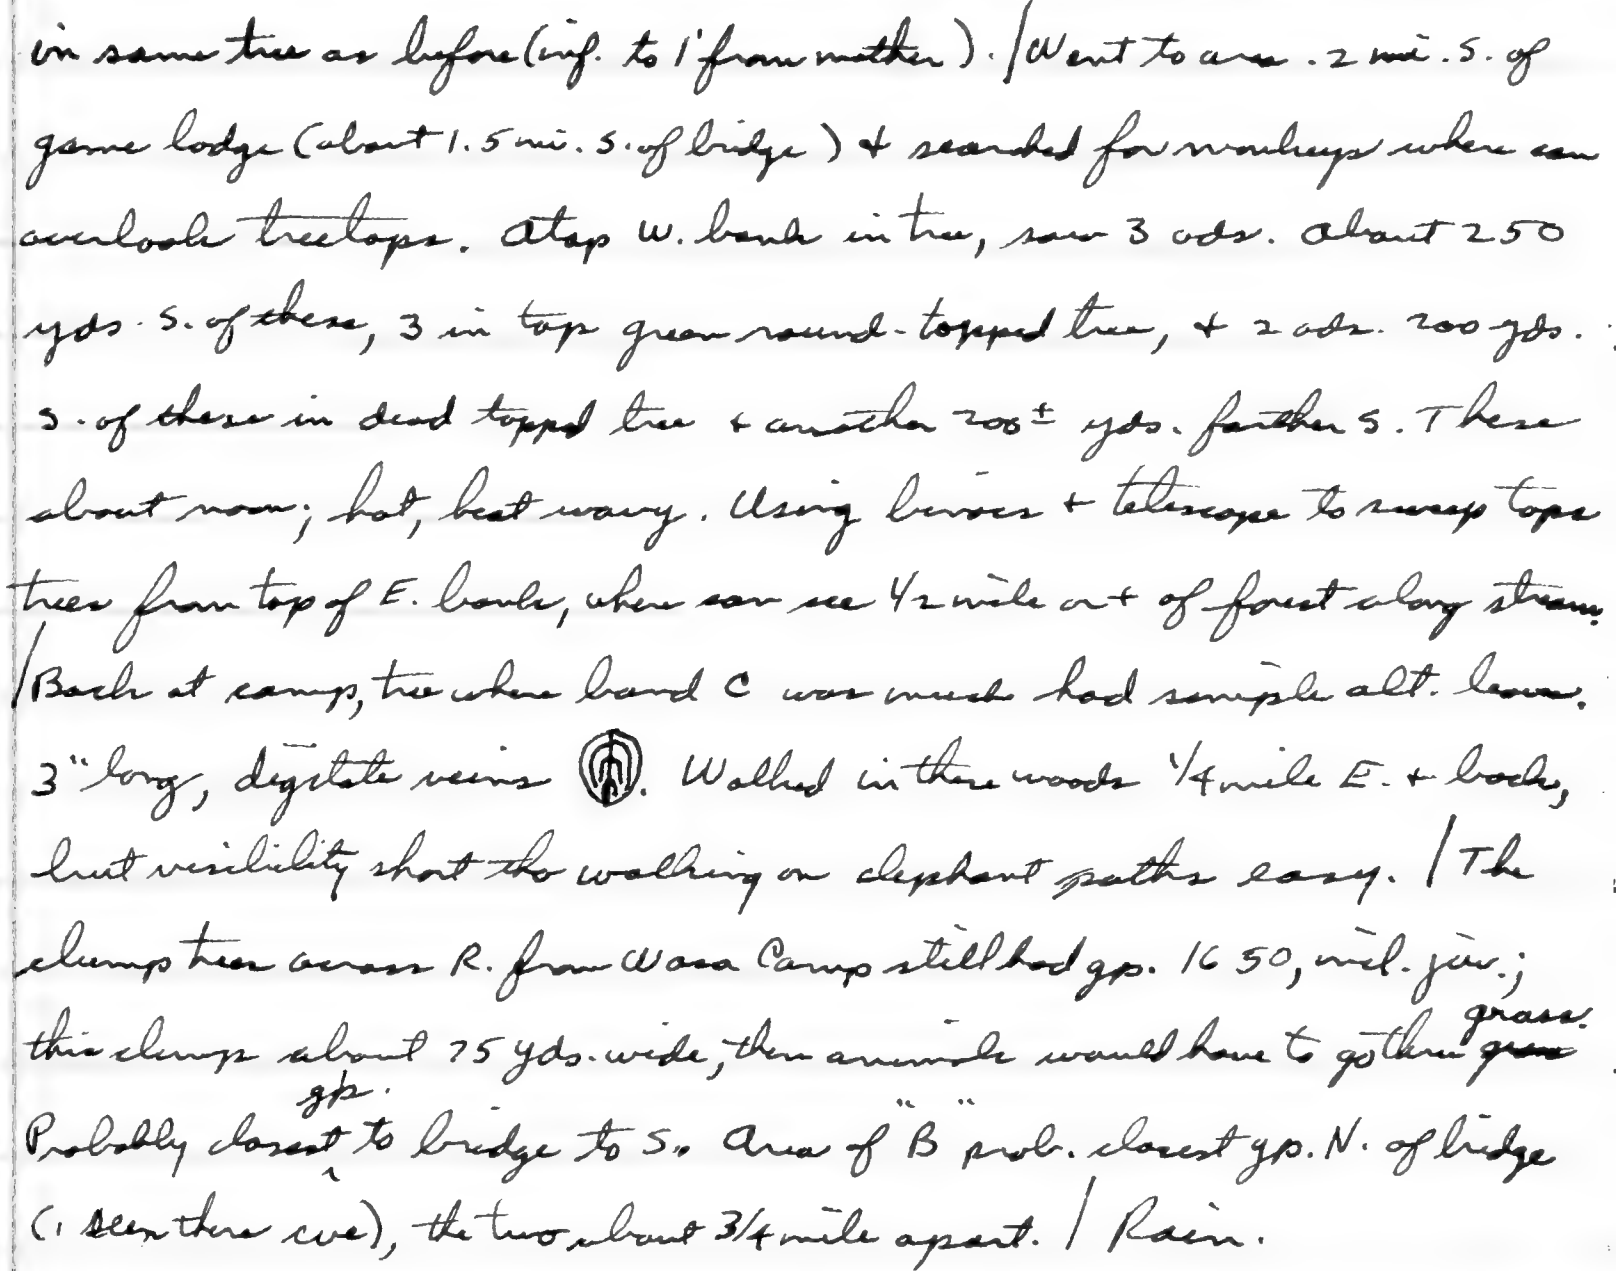 in same tree as before (inf. to 1' from mother). / Went to area .2 mi. S. of
game lodge (about 1.5 mi. S. of bridge) + searched for monkeys where can
overlook treetops. Atop W. bank in tree, saw 3 ads. About 250
yds. S. of these, 3 in top green round-topped tree, + 2 ads. 200 yds.
S. of these in dead topped tree + another 200± yds. farther S. These
about noon; hot, heat wavy. Using binocs + telescope to sweep tops
trees from top of E. bank, where can see 1/2 mile or + of forest along stream.
/ Back at camp, tree where band C was much had simple alt. leaves.
3" long, digitate veins . Walked in these woods 1/4 mile E. + back,
but visibility short tho walking on elephant paths easy. / The
clump trees across R. from Wasa Camp still had gp. 1650, incl. juv.;
this clump about 75 yds. wide, then animals would have to go thru grass.
Probably closest gp. to bridge to S. Area of "B" prob. closest gp. N. of bridge
(1 seen there eve), the two about 3/4 mile apart. / Rain.